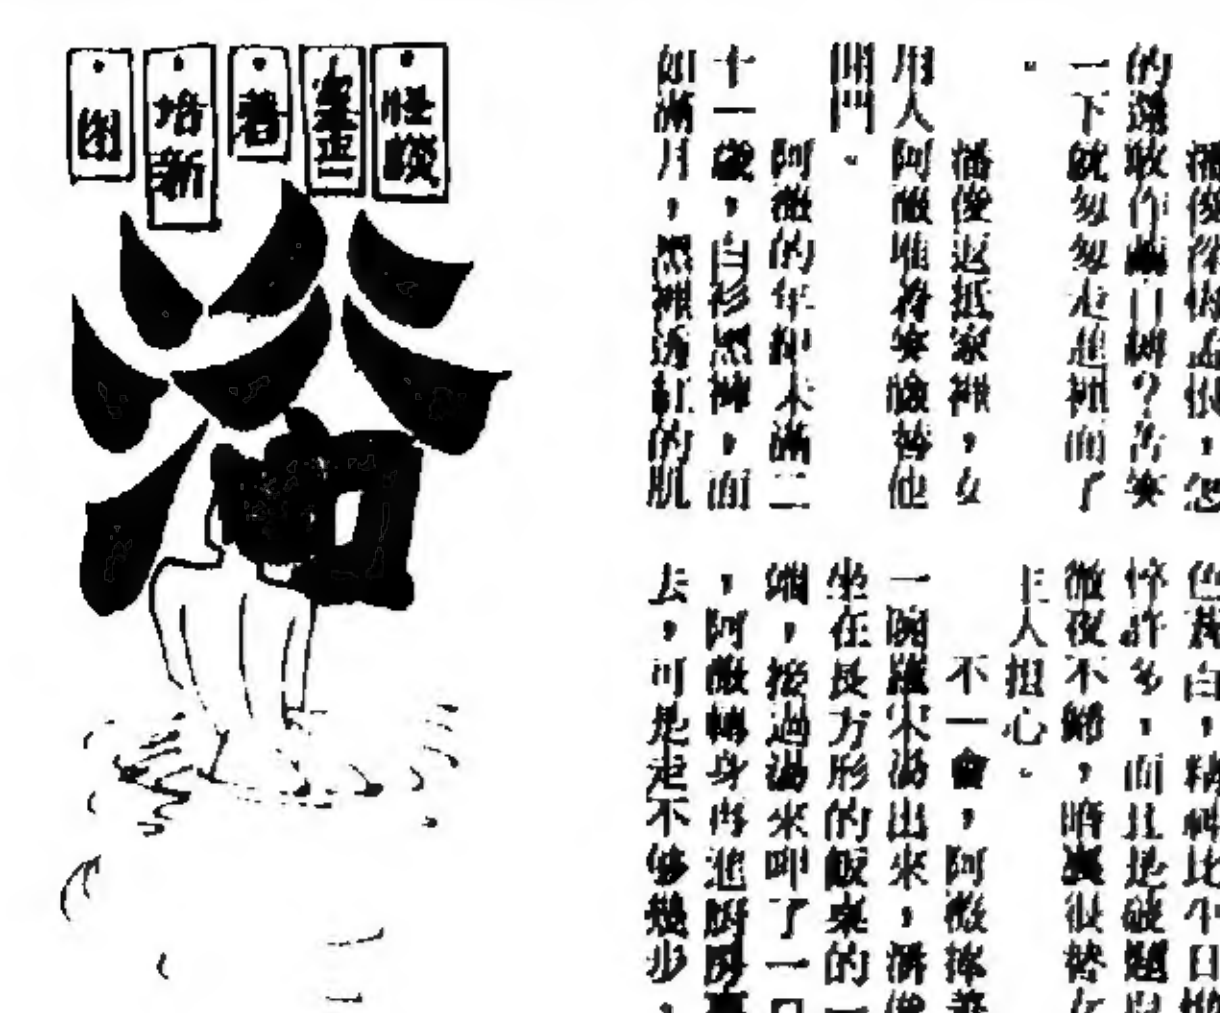 怪談
著
培新
圖
的還敢作苦笑
一下就匆匆走進裡面了
。
潘俊返抵家裡,女
用人阿微堆着笑臉替他
開門。
阿微的年紀未滿二
十一歲,白衫黑褲,面
如滿月,黑裡透紅的肌
色蒼白,精神比平日
悴許多,而且是破題
徹夜不歸,暗裏很替
主人担心。
不一會,阿微捧着
一碗羅宋湯出來,潘俊
坐在長方形的飯桌的一
端,接過湯來呷了一口
,阿微轉身再進廚房裏
去,可是走不够幾步,